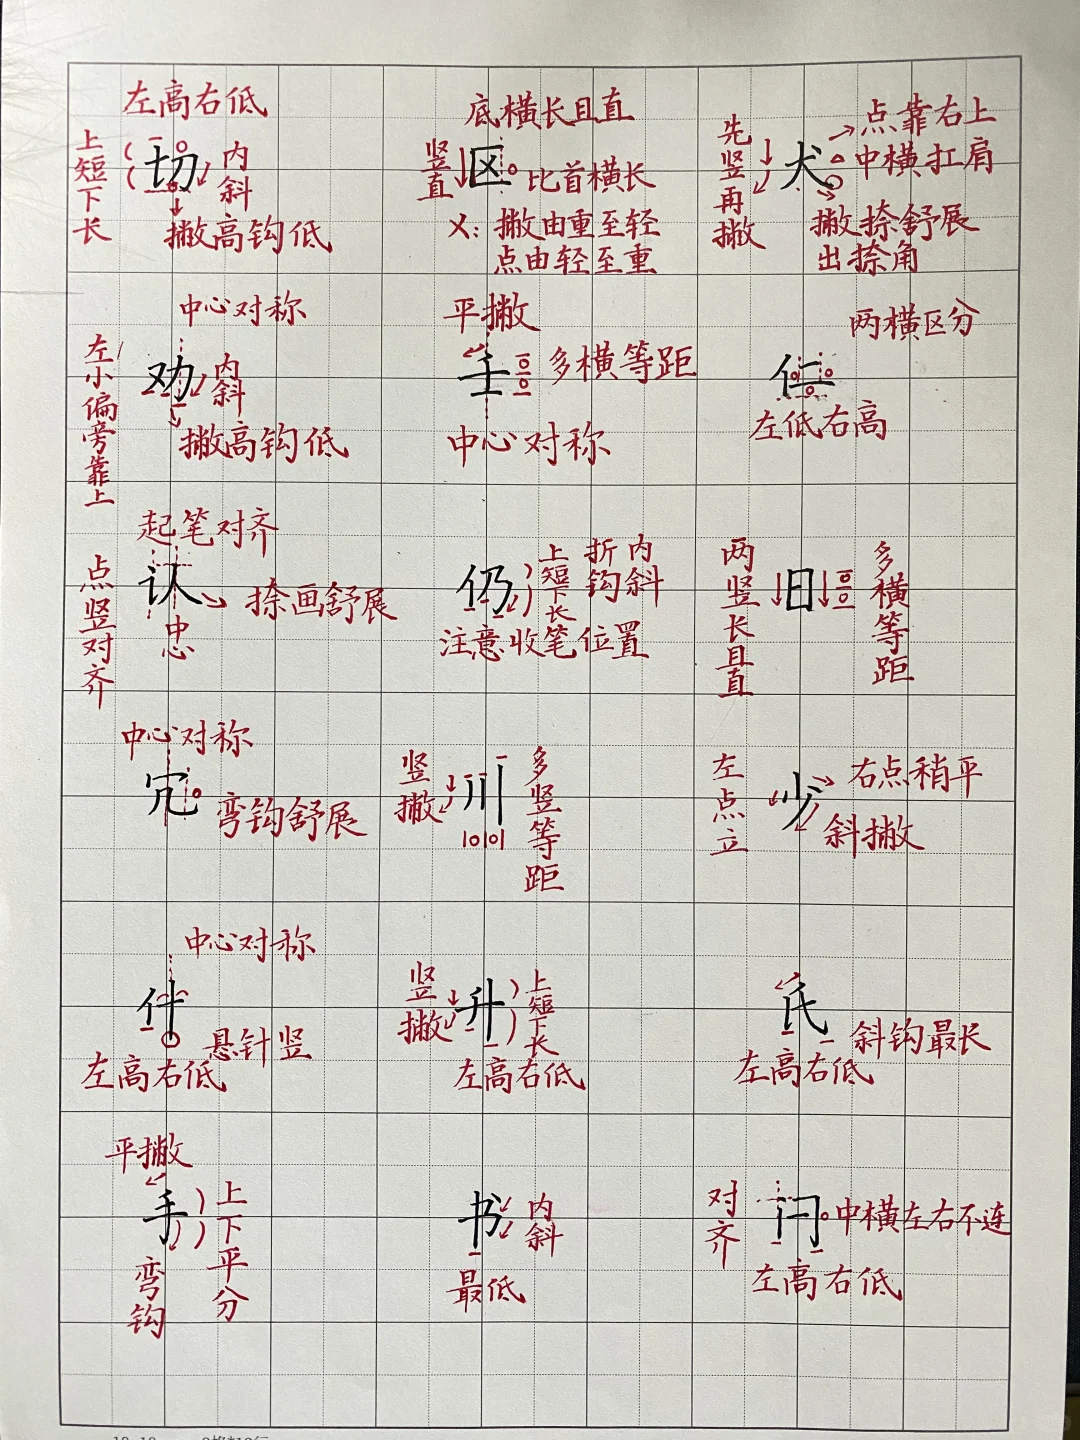 左高右低
上短下长
切
内斜
撇高钩低
底横长且直
竖直
区
比首横长
乂：撇由重至轻
点由轻至重
先竖再撇
犬
点靠右上
中横扛肩
撇捺舒展
出捺角
中心对称
左小偏旁靠上
劝
内斜
撇高钩低
平撇
壬
多横等距
中心对称
两横区分
仁
左低右高
起笔对齐
点竖对齐
认
捺画舒展
中心
仍
上短下长
折钩
内斜
注意收笔位置
两竖长且直
旧
多横等距
中心对称
冗
弯钩舒展
竖撇
川
多竖等距
左点立
少
右点稍平
斜撇
中心对称
什
悬针竖
左高右低
竖撇
升
上短下长
左高右低
氏
斜钩最长
左高右低
平撇
手
上下平分
弯钩
书
内斜
最低
对齐
闩
中横左右不连
左高右低